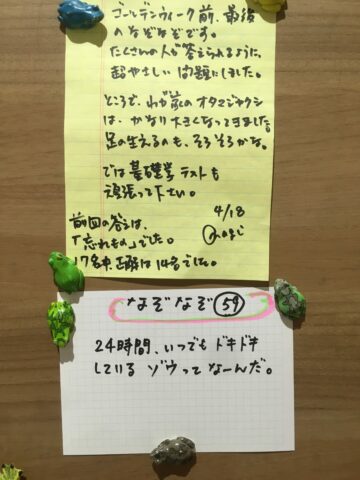 ゴールデンウィーク前、最後
のなぞなぞです。
たくさんの人が答えられるように、
超やさしい問題にしました。
ところで、わが家のオタマジャクシ
は、かなり大きくなってきました。
足の生えるのも、そろそろかな。
では基礎学テストも
頑張って下さい。
4/18
前回の答えは、
「忘れもの」でした。
17名中、正解は14名でした。
なぞなぞ 59
24時間、いつでもドキドキ
しているゾウってなーんだ。